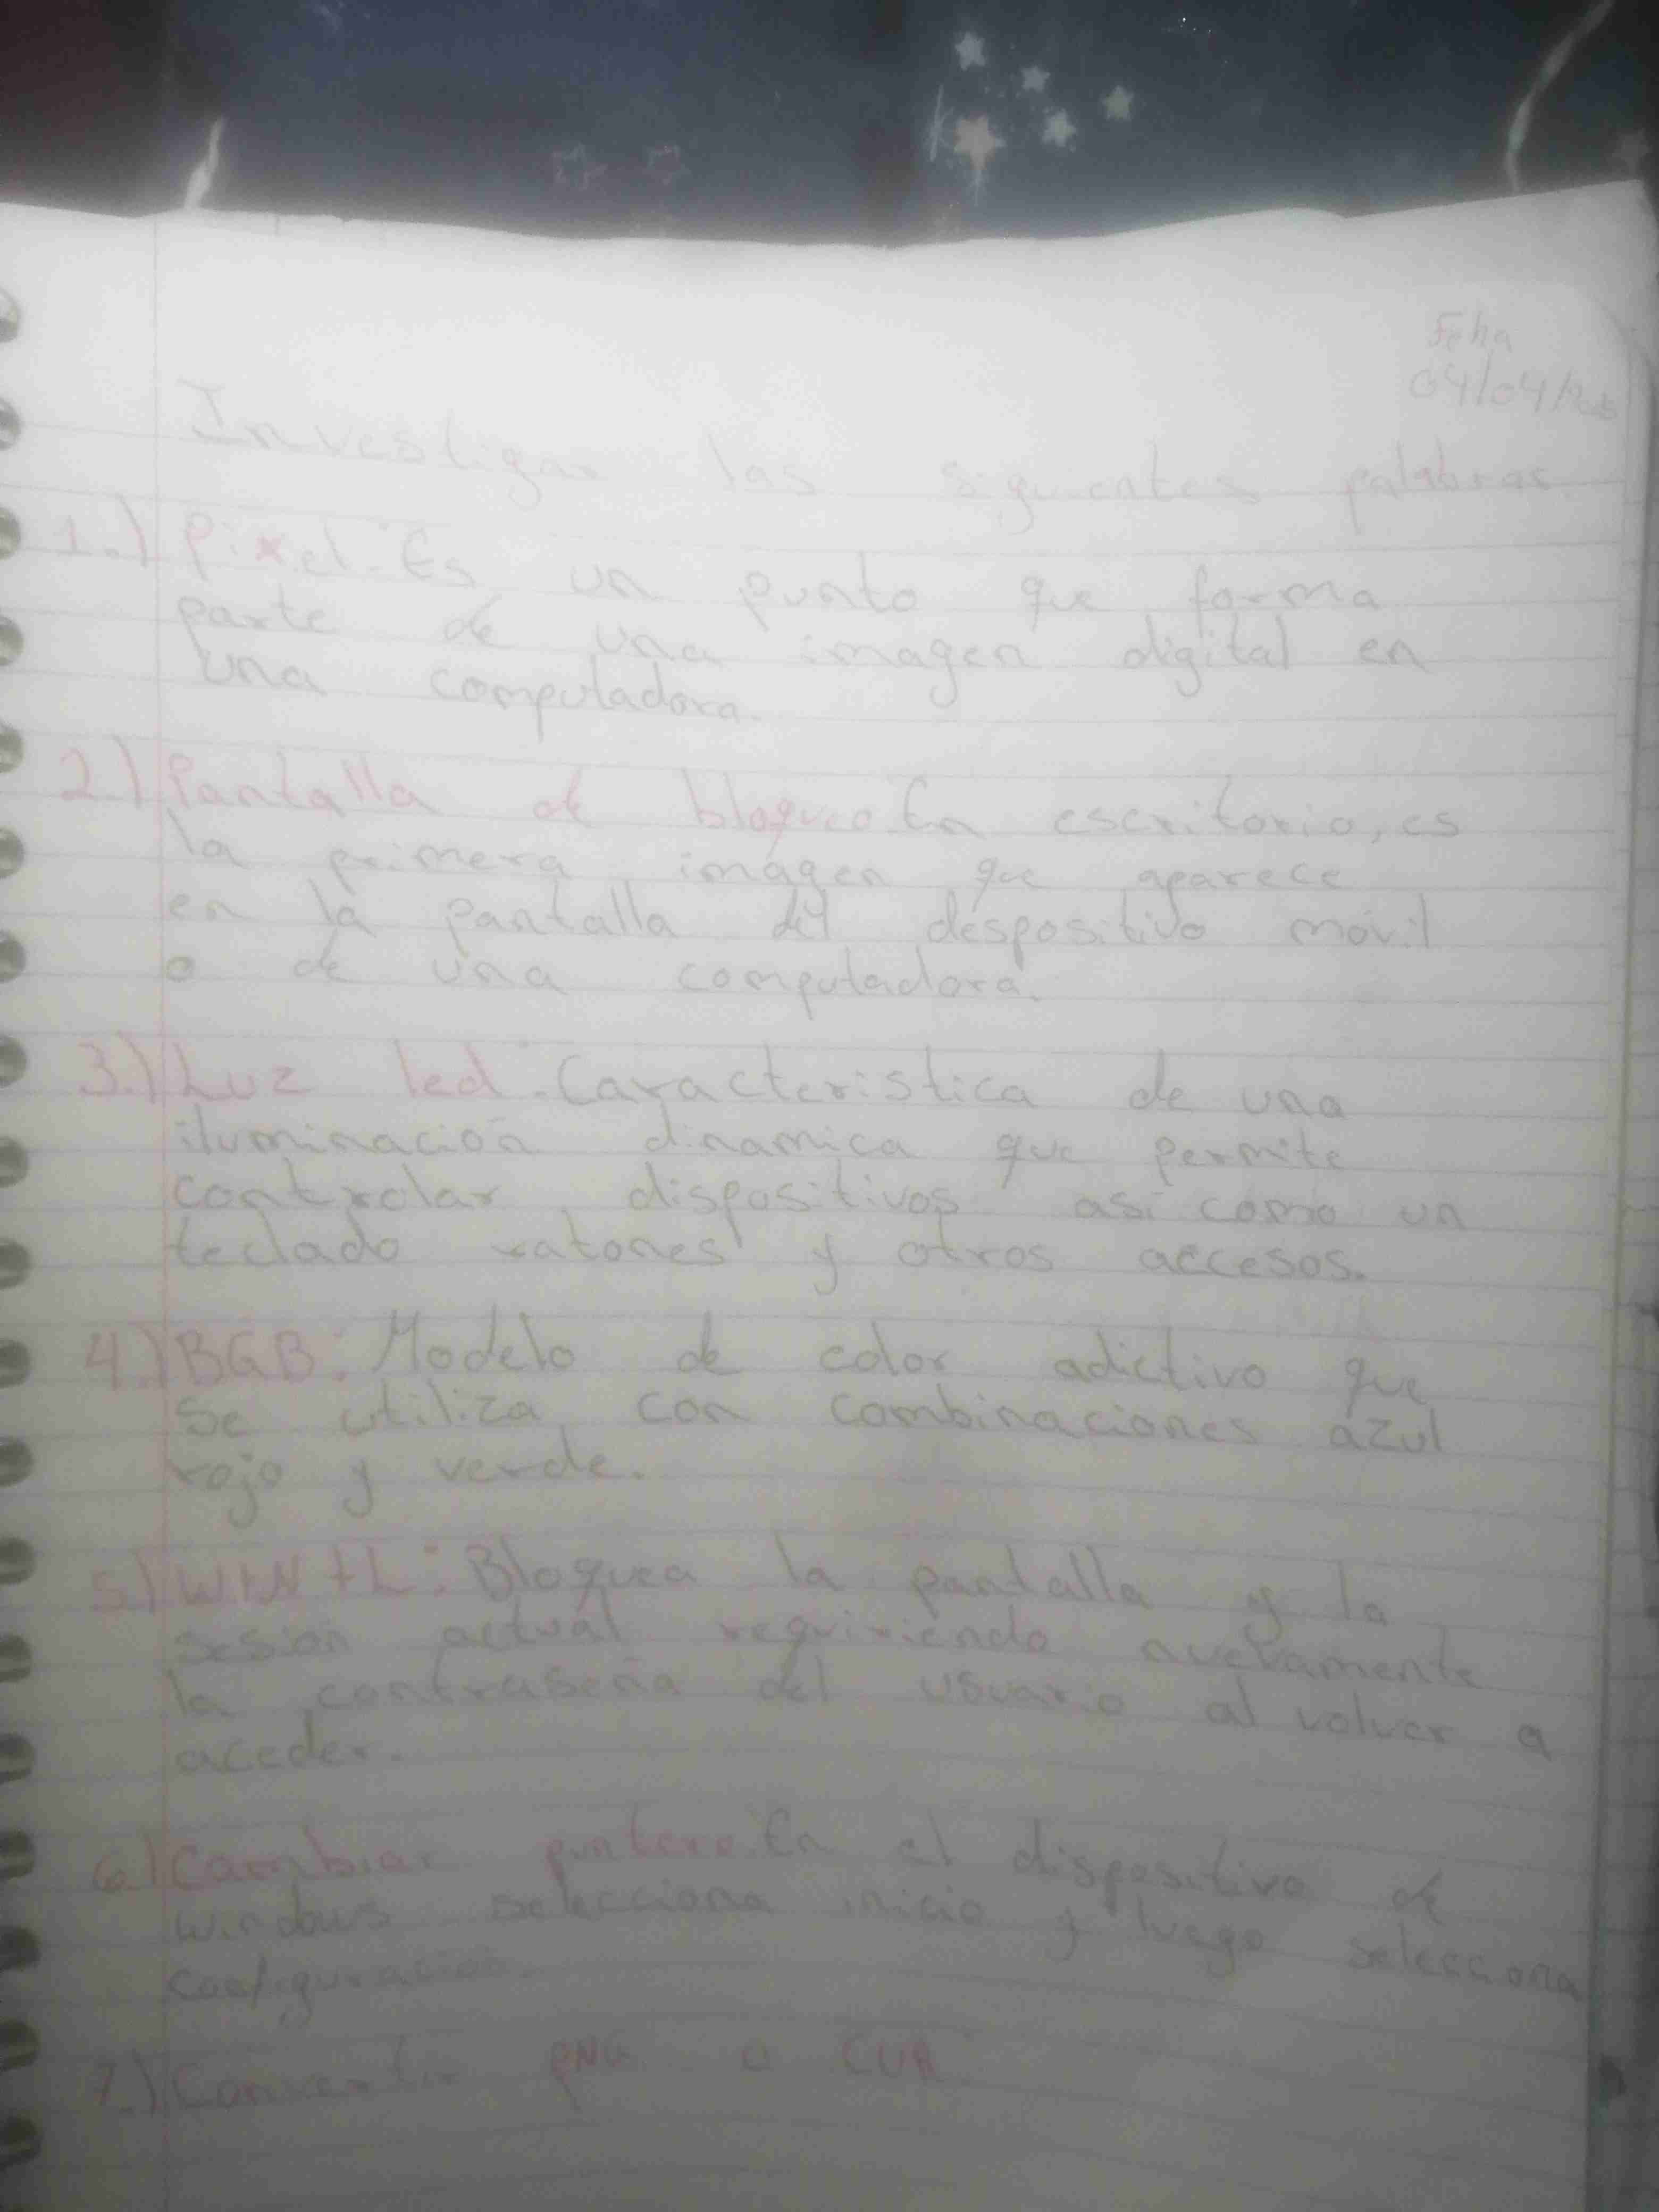 Feha
04/04/
Investigar las siguientes palabras
1.) Pixel: Es un punto que forma
parte de una imagen digital en
una computadora.
2.) Pantalla de bloqueo: En escritorio, es
la primera imagen que aparece
en la pantalla del despositivo móvil
o de una computadora.
3.) Luz led: Caracteristica de una
iluminación dinamica que permite
controlar dispositivos así como un
teclado ratones y otros accesos.
4.) BGB: Modelo de color adictivo que
se utiliza con combinaciones azul
rojo y verde.
5.) WIN+L: Bloquea la pantalla y la
sesión actual requiriendo nuevamente
la contraseña del usuario al volver a
aceder.
6.) Cambiar puntero: En el dispositivo de
windows selecciona inicio y luego selecciona
configuración.
7.) Convertir PNG a CUR